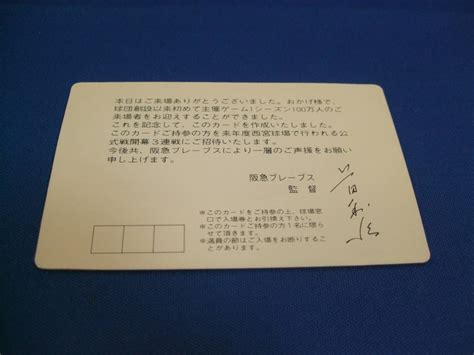 本日はご来場ありがとうございました。おかげ様で、
球団創設以来初めて主催ゲーム1シーズン100万人のご
来場者をお迎えすることができました。
これを記念して、このカードを作成いたしました。
このカードご持参の方を来年度西宮球場で行われる公
式戦開幕3連戦にご招待いたします。
今後共、阪急ブレーブスにより一層のご声援をお願い
申し上げます。
阪急ブレーブス
監督
※このカードをご持参の上、球場窓
口で入場券とお引換え下さい。
※このカードご持参の方1名に限ら
せて頂きます。
※満員の節はご入場をお断りするこ
とがあります。